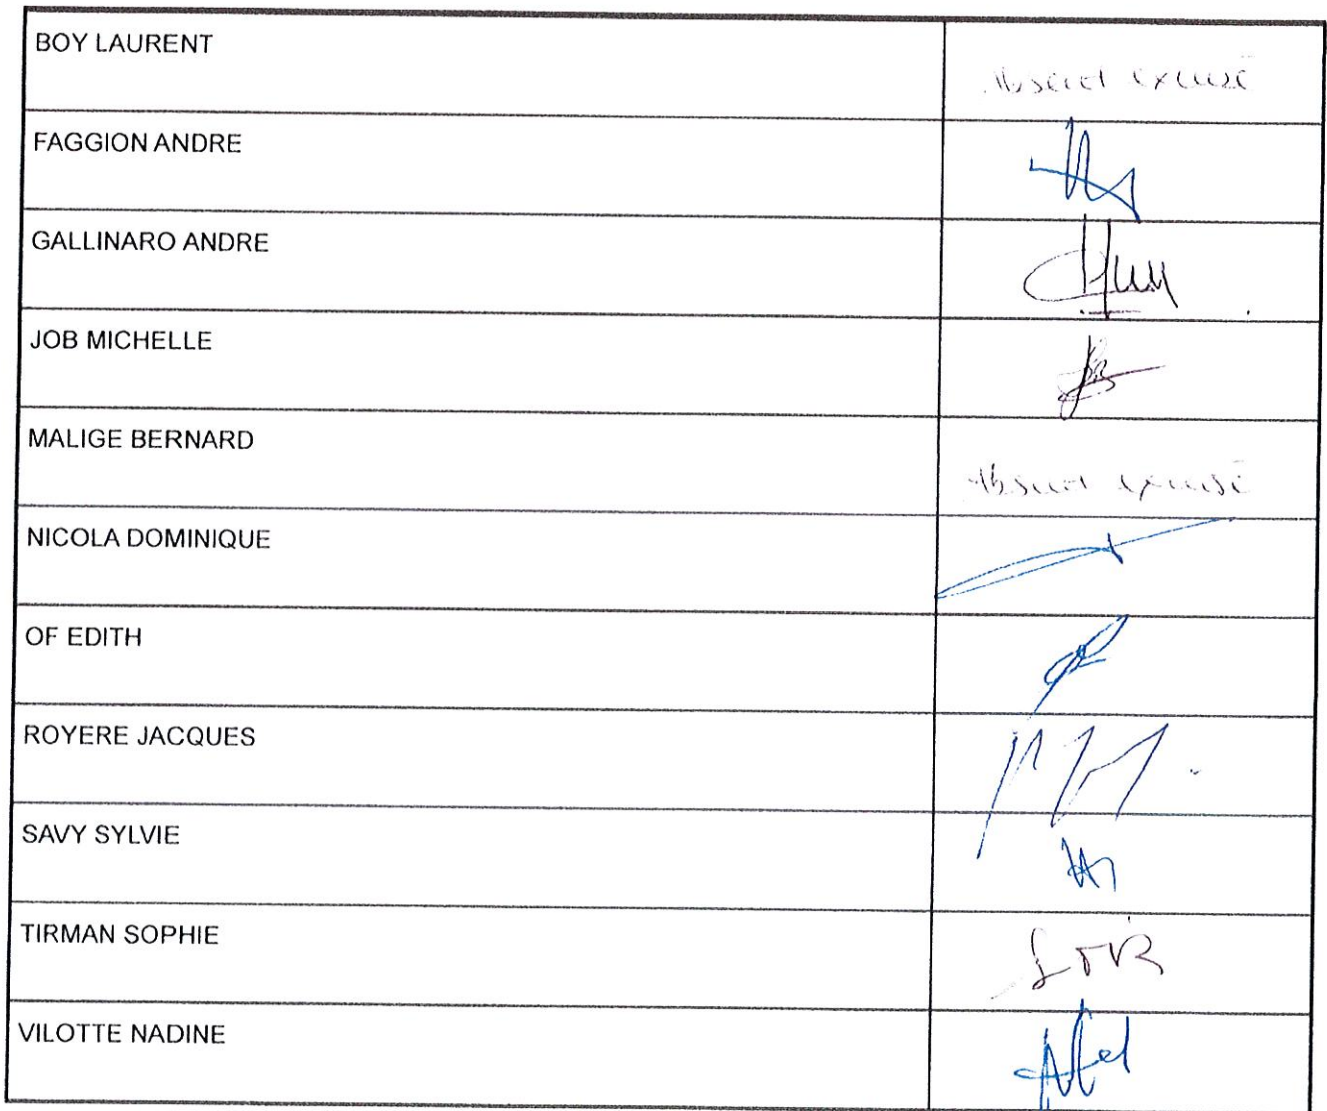 BOY LAURENT
Absent excusé
FAGGION ANDRE
GALLINARO ANDRE
JOB MICHELLE
MALIGE BERNARD
Absent excusé
NICOLA DOMINIQUE
OF EDITH
ROYERE JACQUES
SAVY SYLVIE
TIRMAN SOPHIE
VILOTTE NADINE